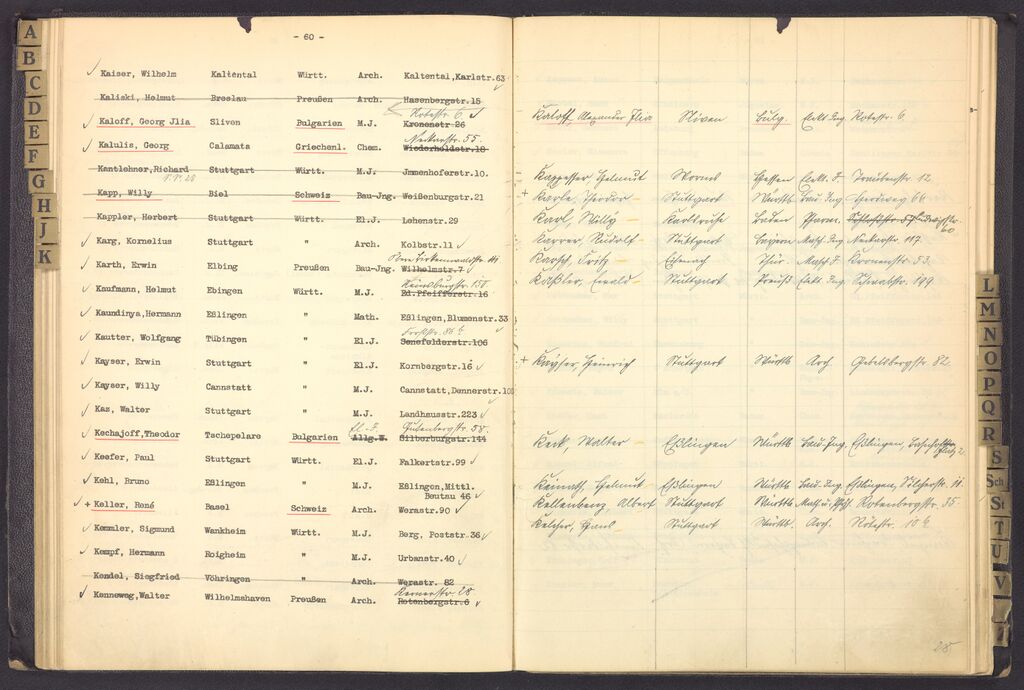 - 60 -
✓ Kaiser, Wilhelm Kaltental Württ. Arch. Kaltental,Karlstr.63
Kaliski, Helmut Breslau Preußen Arch. Hasenbergstr.15
Rotestr. 6 ✓
✓ Kaloff, Georg Jlia Sliven Bulgarien M.J. Kronenstr 26
Neckarstr. 55.
✓ Kalulis, Georg Calamata Griechenl. Chem. Wiederholdstr.18
Kantlehner,Richard Stuttgart Württ. M.J. Jmmenhoferstr.10.
✓ Kapp, Willy Biel Schweiz Bau-Jng. Weißenburgstr.21
Kappler, Herbert Stuttgart Württ. El.J. Lehenstr.29
✓ Karg, Kornelius Stuttgart " Arch. Kolbstr.11 ✓
✓ Karth, Erwin Elbing Preußen Bau-Jng. Wilhelmstr.7 ✓
✓ Kaufmann, Helmut Ebingen Württ. M.J. Ed.Pfeifferstr.16
✓ Kaundinya,Hermann Eßlingen " Math. Eßlingen,Blumenstr.33
✓ Kautter, Wolfgang Tübingen " El.J. Senefelderstr.106
✓ Kayser, Erwin Stuttgart " El.J. Kornbergstr.16 ✓
✓ Kayser, Willy Cannstatt " M.J. Cannstatt,Dennerstr.100
✓ Kaz, Walter Stuttgart " M.J. Landhausstr.223 ✓
El.J. Gutenbergstr. 58.
✓ Kechajoff,Theodor Tschepelare Bulgarien Allg.W. Silberburgstr.144
✓ Keefer, Paul Stuttgart Württ. El.J. Falkertstr.99 ✓
✓ Kehl, Bruno Eßlingen " M.J. Eßlingen,Mittl.
Beutau 46 ✓
✓ + Keller, René Basel Schweiz Arch. Werastr.90 ✓
✓ Kemmler, Sigmund Wankheim Württ. M.J. Berg, Poststr.36 ✓
✓ Kempf, Hermann Roigheim " M.J. Urbanstr.40 ✓
Kendel, Siegfried Vöhringen " Arch. Werastr. 82
Kernerstr. 28
✓ Kenneweg,Walter Wilhelmshaven Preußen Arch. Rotenbergstr.6 ✓
Kaloff, Alexander Ilia Sliven Bulg. Elekt.Ing. Rotestr. 6
Kappesser, Helmut Worms Hessen Elekt. J. Traubenstr. 12.
+ Karle, Theodor Stuttgart Württb. Bau-Ing. Heerweg 66
Karl, Willy Karlsruhe Baden Pharm.
Karrer, Rudolf Stuttgart Bayern Masch.Ing. Neckarstr. 117.
Karsch, Fritz Eisenach Thür. Masch. J. Kronenstr. 53.
Kaßler, Ewald Stuttgart Preuß. Elekt. Ing. Schwabstr. 199
+ Kayser, Heinrich Stuttgart Württb. Arch. Gebelsbergstr. 82.
Keck, Walter Eßlingen Württb. Bau-Ing. Eßlingen, Bahnhofplatz 2.
Keinath, Helmut Eßlingen Württb. Bau-Ing. Eßlingen, Silcherstr. 11.
Kellenbenz, Albert Stuttgart Württb. Math. u. Phys. Rotenbergstr. 35
Kelcher, Paul Stuttgart Württb. Arch. Rotestr. 10
28
A
B
C
D
E
F
G
H
J
K
L
M
N
O
P
Q
R
S
Sch
St
T
U
V